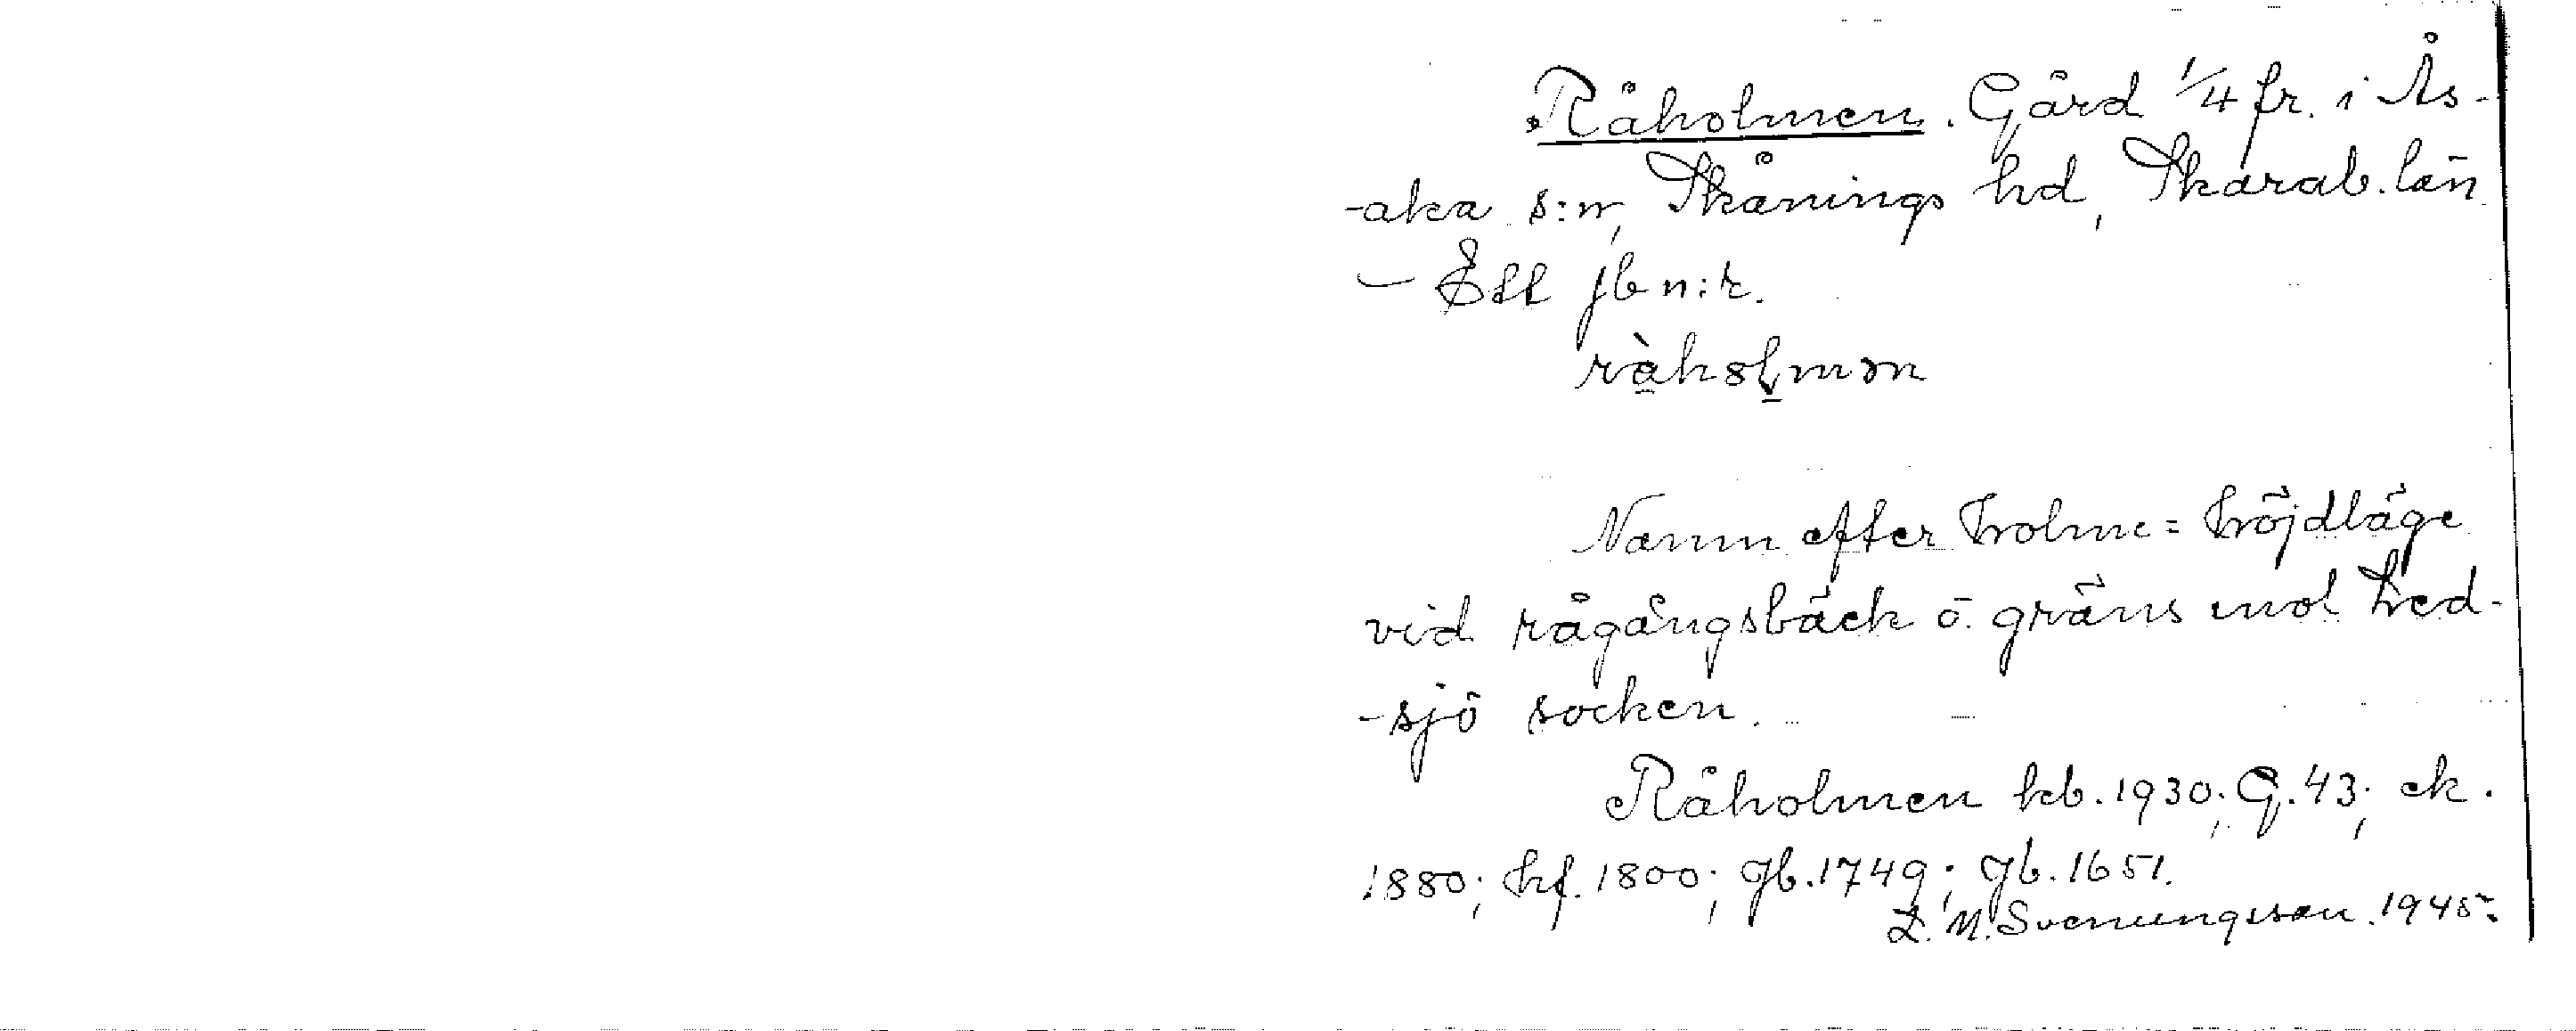 Råholmen. Gård 1/4 fr. i Ås-
-aka s:n, Skånings hd, Skarab. län
— Ett jb n:r.
rå̀hoḷmən
Namn efter holme = höjdläge
vid rågångsbäck o. gräns mot Hed-
-sjö socken.
Råholmen kb. 1930; G. 43; ek.
1880; hf. 1800; Jb. 1749; Jb. 1651.
L. M. Svenungsson. 1945.